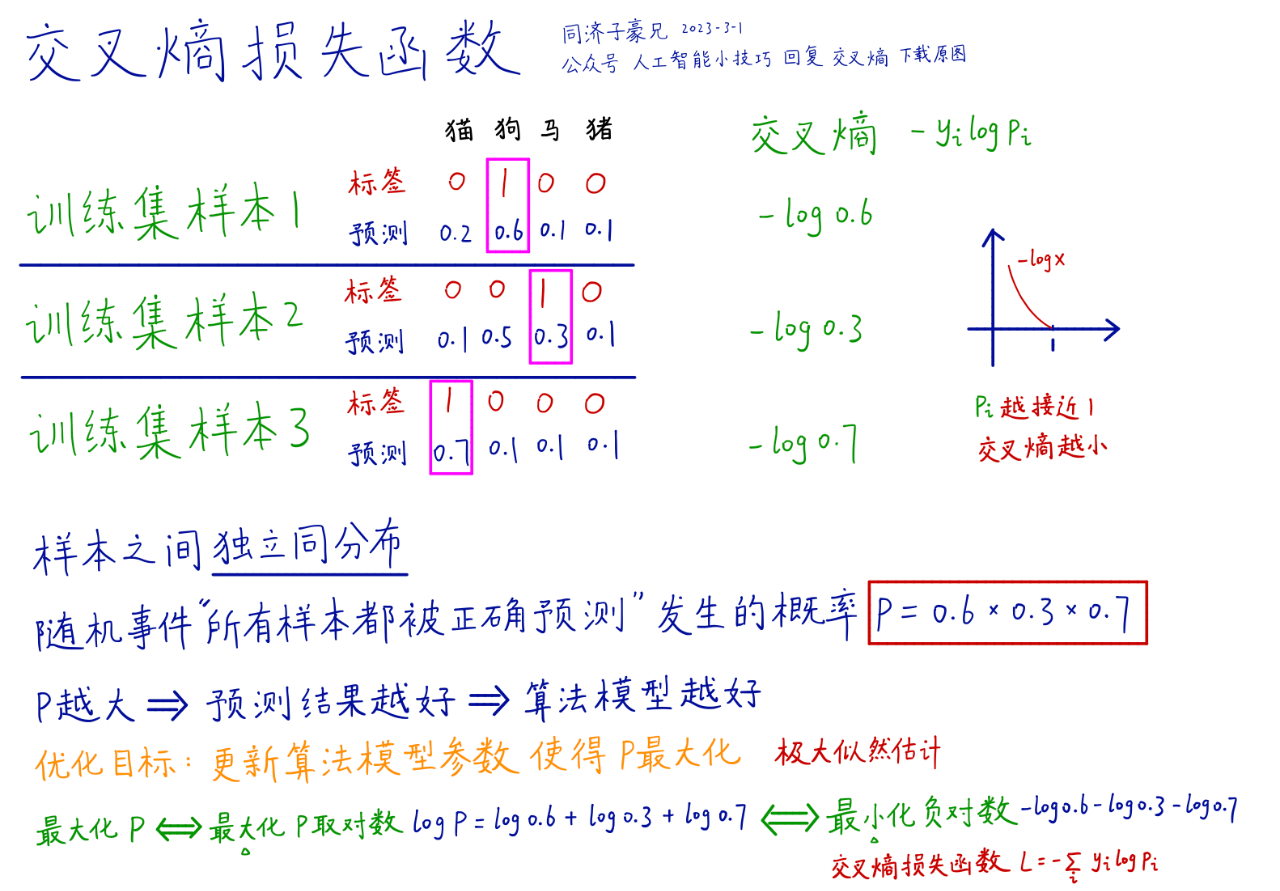 交叉熵损失函数
同济子豪兄 2023-3-1
公众号 人工智能小技巧 回复 交叉熵 下载原图
猫 狗 马 猪
交叉熵 -yilogPi
训练集样本1
标签 0 1 0 0
预测 0.2 0.6 0.1 0.1
-log 0.6
训练集样本2
标签 0 0 1 0
预测 0.1 0.5 0.3 0.1
-log 0.3
训练集样本3
标签 1 0 0 0
预测 0.7 0.1 0.1 0.1
-log 0.7
-logx
1
Pi越接近1
交叉熵越小
样本之间独立同分布
随机事件“所有样本都被正确预测”发生的概率 P=0.6×0.3×0.7
P越大 ⇒ 预测结果越好 ⇒ 算法模型越好
优化目标: 更新算法模型参数 使得 P最大化 极大似然估计
最大化 P ⇔ 最大化 P取对数 log P = log 0.6 + log 0.3 + log 0.7 ⇔ 最小化负对数 -log0.6-log0.3-log0.7
交叉熵损失函数 L=-∑i yilogPi